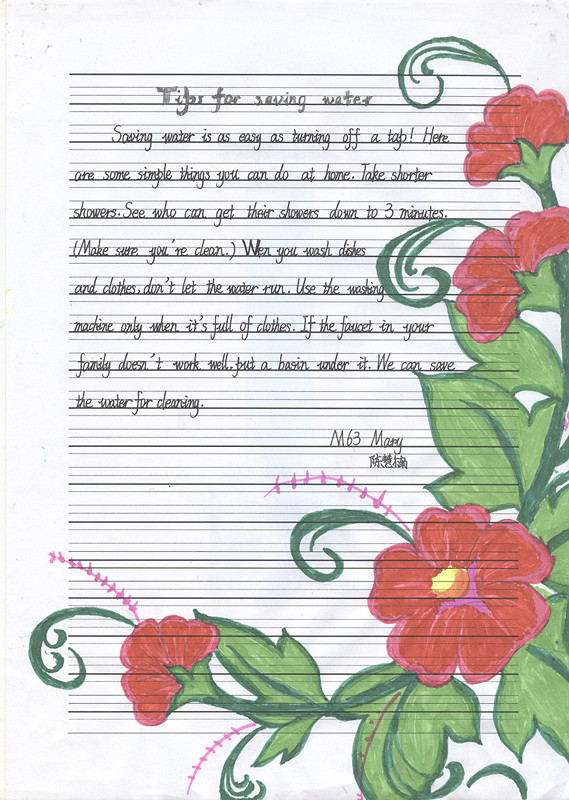 Tips for saving water
Saving water is as easy as turning off a tap! Here
are some simple things you can do at home. Take shorter
showers. See who can get their showers down to 3 minutes.
(Make sure you're clean.) Wen you wash dishes
and clothes, don't let the water run. Use the washing
machine only when it's full of clothes. If the faucet in your
family doesn't work well, put a basin under it. We can save
the water for cleaning.
M63 Mary
陈慧楠